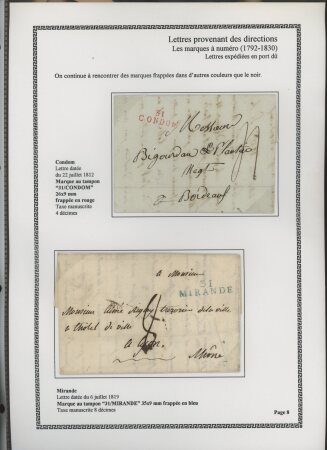 Lettres provenant des directions
Les marques à numéro (1792-1830)
Lettres expédiées en port dû
On continue à rencontrer des marques frappées dans d'autres couleurs que le noir.
31
CONDOM
Messieurs
Bordeaux
Condom
Lettre datée
du 22 juillet 1812
Marque au tampon
"31/CONDOM"
26x9 mm
frappée en rouge
Taxe manuscrite
4 décimes
31
MIRANDE
à Monsieur
Monsieur
à l'hôtel de ville
à Lyon
Rhône
Mirande
Lettre datée du 6 juillet 1819
Marque au tampon "31/MIRANDE" 35x9 mm frappée en bleu
Taxe manuscrite 8 décimes
Page 8